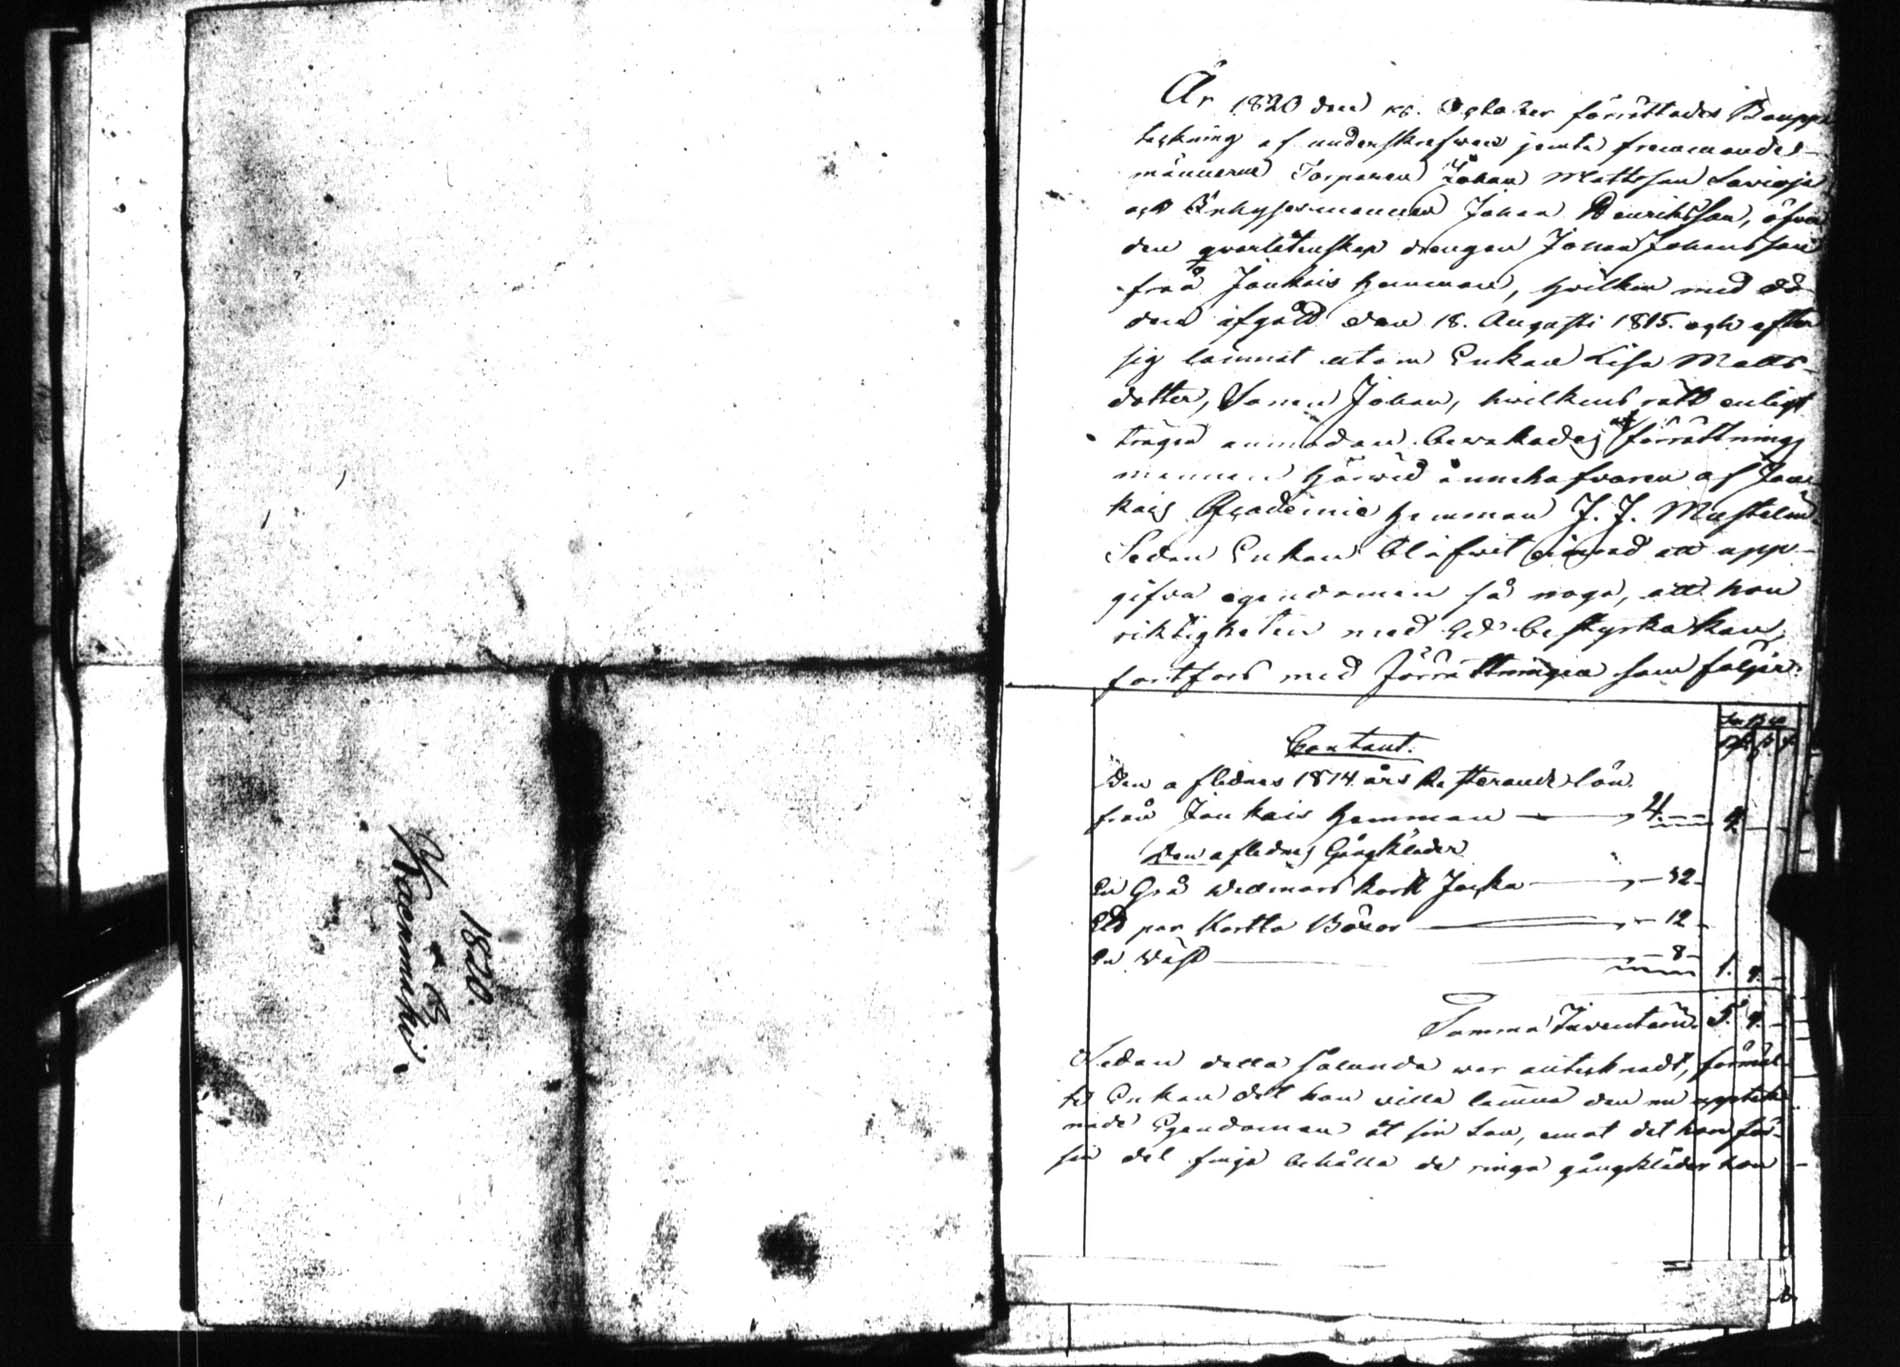 1820.
År 1820 den 16. October förrättades Boupp-
tekning af underskrefwen jemte fremmande
männerne Torparen Johan Mattsson Sarioja
och Inhysesmannen Johan Henriksson, öfver
den qvarlåtenskap drengen Johan Johansson
från Joukais hemman, hvilken med dö-
den afgått den 18. Augusti 1815. och efter
sig lämnat utom Enkan Lisa Matts-
dotter, Sonen Johan, hvilkens rätt enligt
anmodan bewakades af förrättnings
mannen härwid innehafvaren af Jou-
kais Academie hemman J. J. Mustelin
Sedan Enkan blifwit att upp-
gifva egendomen så noga, att hon
riktigheten med Ed bestyrka kan,
fortfors med förrättningen som följer.
Contant.
Den aflednes 1814 års Resterande lön
från Joukais hemman 4. 4
Den aflednes Gångkläder
En Grå wallmars kort Jacka 32
Ett par Kortta Böxor 12
En Wäst 8 1. 4
Summa Inventarii 5. 4
Sedan detta sålunda war antecknadt, förmäl-
te Enkan det hon wille lämna den nu upptek-
nade Egendomen åt sin Son, emot det hon för
sin del finge behålla de ringa gångkläder hon